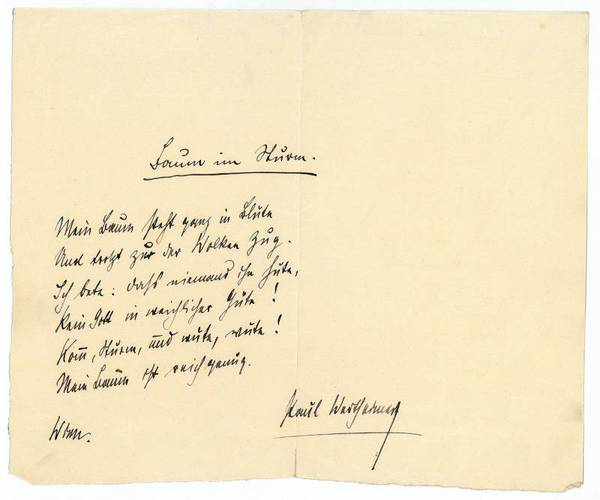 Baum im Sturm.
Mein Baum steht ganz in Blüte
Und trotzt der Wolken Zug.
Ich bete: dass niemand ihn hüte,
Kein Gott in weichlicher Güte!
Kom̄, Sturm, und wüte, wüte!
Mein Baum ist reich genug.
Paul Wertheimer
Wien.